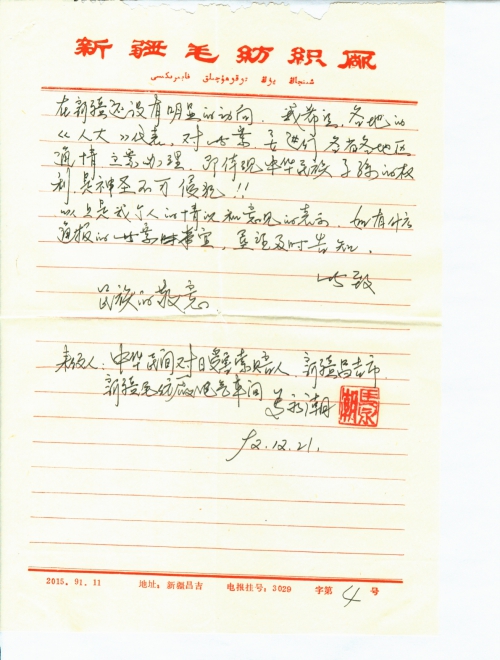 新疆毛纺织厂
شىنجاڭ يۇڭ توقۇمىچىلىق فابىرىكىسى
在新疆还没有明显的动向。我希望,各地的
《人大》代表,对此案,要进行各省各地区
通情立案办理,即体现中华民族子孙的权
利,是神圣不可侵犯!!
以上是我个人的情况和意见的表示,如有什么
通报的此案事宜,望请及时告知。
此致
民族的敬意
表议人:中华民间对日受害索赔人,新疆昌吉市
新疆毛纺厂电气车间 马永潮
92.12.21.
2015.91.11 地址:新疆昌吉 电报挂号:3029 字第4号